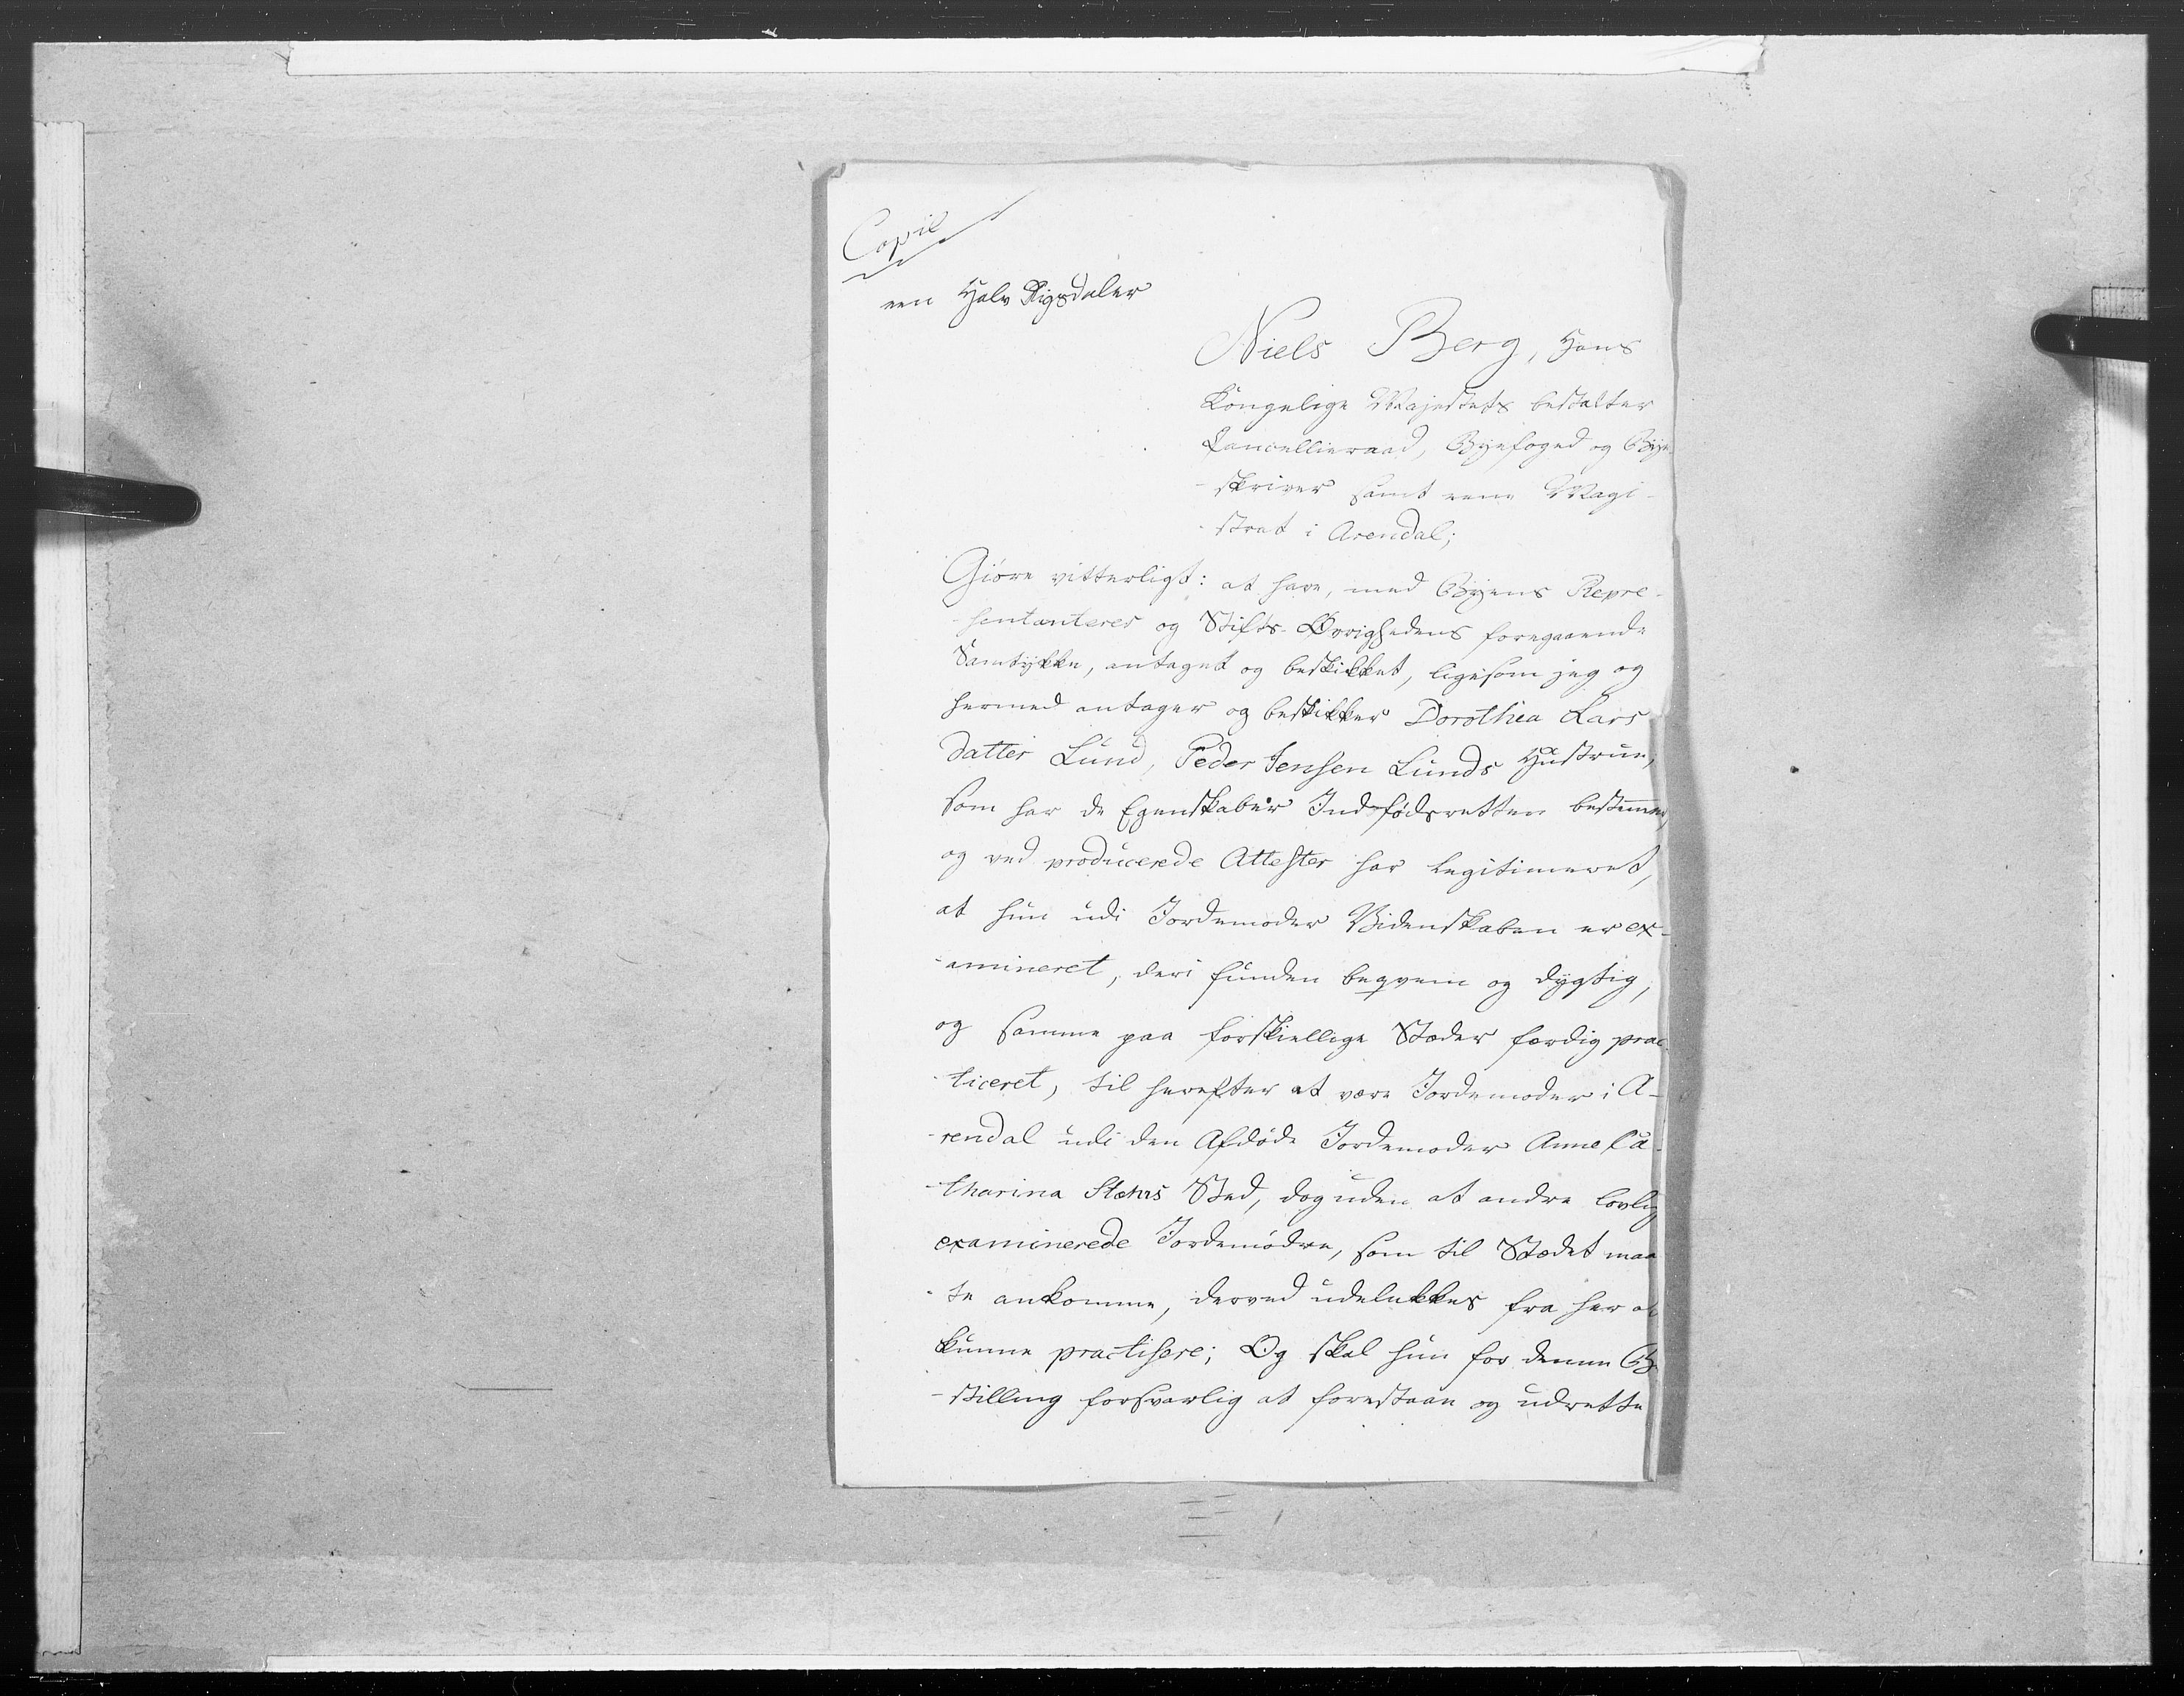 Copie
een Halv Rigsdaler
Niels Berg, Hans
Kongelige Majestets bestalter
Cancellieraad, Byefoged og Bye
-skriver samt eene Magi-
-strat i Arendal;
Giöre vitterligt: at have, med Byens Repre-
-sentanteres og Stifts-Øvrighedens foregaaende
Samtÿkke, antaget og beskikket, ligesom jeg og
hermed antager og beskikker Dorothea Lars
datter Lund, Peder Jensen Lunds Hustrue,
som har de Egenskaber Indfödsretten bestemmer,
og ved producerede Attester har legitimeret,
at hun udi Jordemoder Videnskaben er ex-
-amineret, deri funden beqvem og dygtig,
og samme paa forskiellige Stæder færdig prac-
-ticeret, til herefter at være Jordemoder i A-
-rendal udi den Afdöde Jordemoder Anne Ca-
-tharina Stæhrs Sted, dog uden at andre lovlig
examinerede Jordemödre, som til Stædet maa
-te ankomme, derved udelukkes fra her at
kunne practisere; Og skal hun for denne Be
-stilling forsvarlig at forestaae og udrette